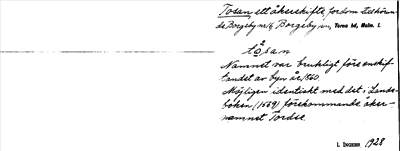 Tosan ett åkerskifte, fordom tillhöran-
de Borgeby nr 6, Borgeby sn, Torna hd, Malm. l.
tåsan
Namnet var brukligt före enskif-
tandet av byn år 1860.
Möjligen identiskt med det i Lands-
boken (1569) förekommande åker-
namnet Tordse
I. INGERS 1928